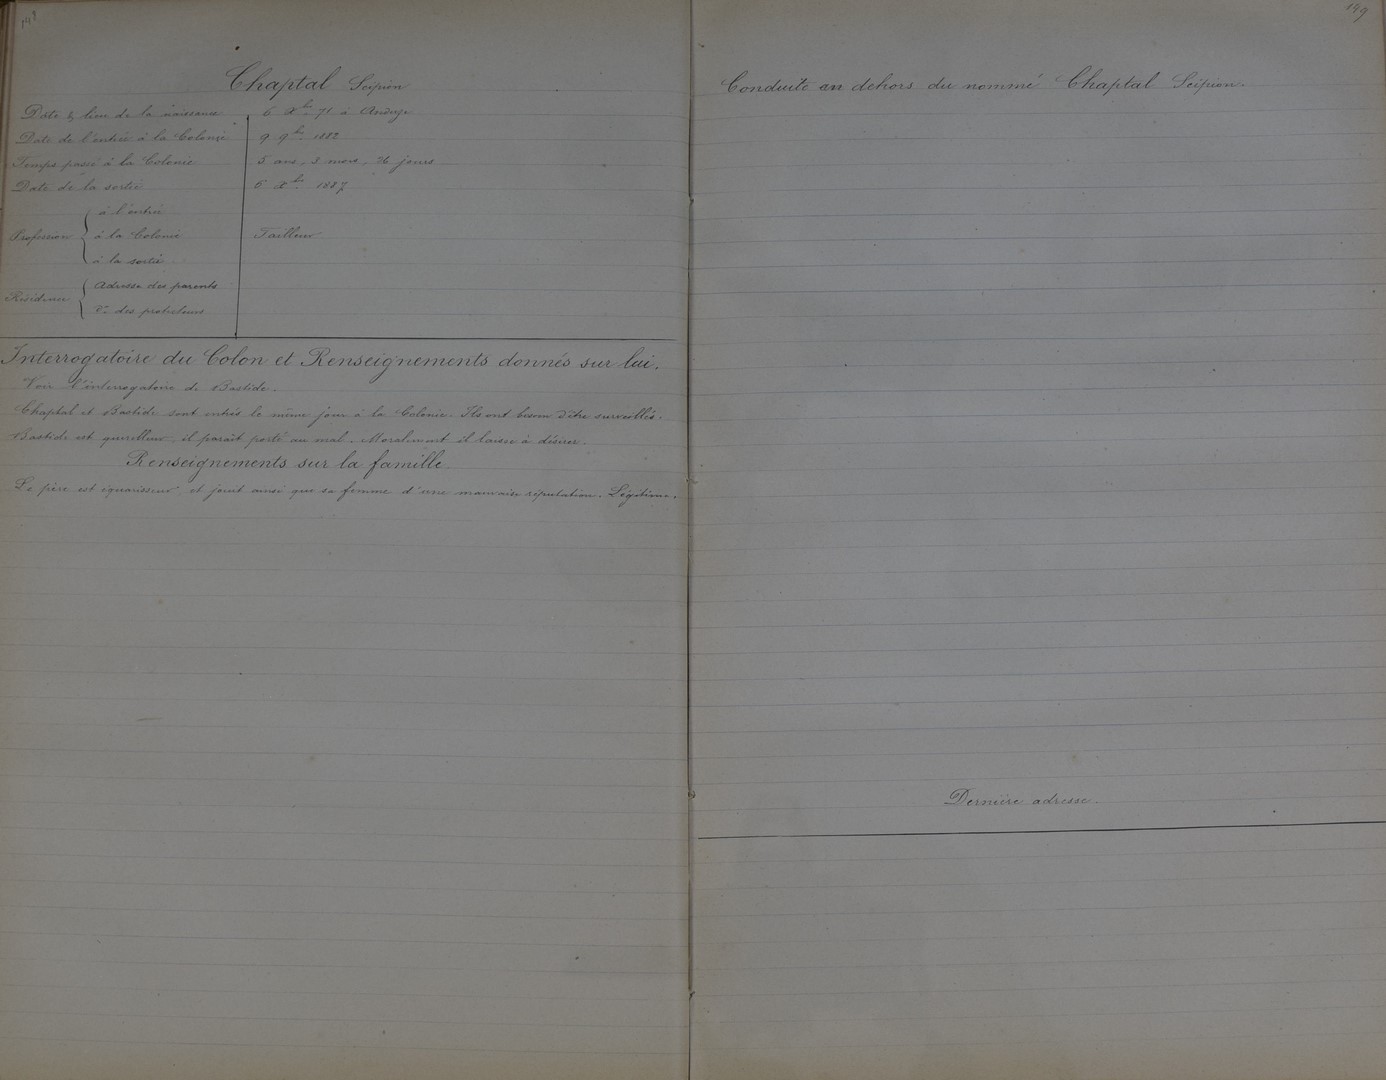 148
Chaptal Scipion
Date & lieu de la naissance 5 Xbre 71 à Anduze
Date de l'entrée à la Colonie 9 9bre 1882
Temps passé à la Colonie 5 ans, 3 mois, 26 jours
Date de la sortie 5 Xbre 1887
à l'entrée
Profession à la Colonie Tailleur
à la sortie
Adresse des parents
Résidence
d° des protecteurs
Interrogatoire du Colon et Renseignements donnés sur lui.
Voir l'interrogatoire de Bastide.
Chaptal et Bastide sont entrés le même jour à la Colonie. Ils ont besoin d'être surveillés.
Bastide est querelleur, il paraît porté au mal. Moralement il laisse à désirer.
Renseignements sur la famille
Le père est équarisseur et jouit ainsi que sa femme d'une mauvaise réputation. Légitime.
149
Conduite en dehors du nommé Chaptal Scipion.
Dernière adresse.